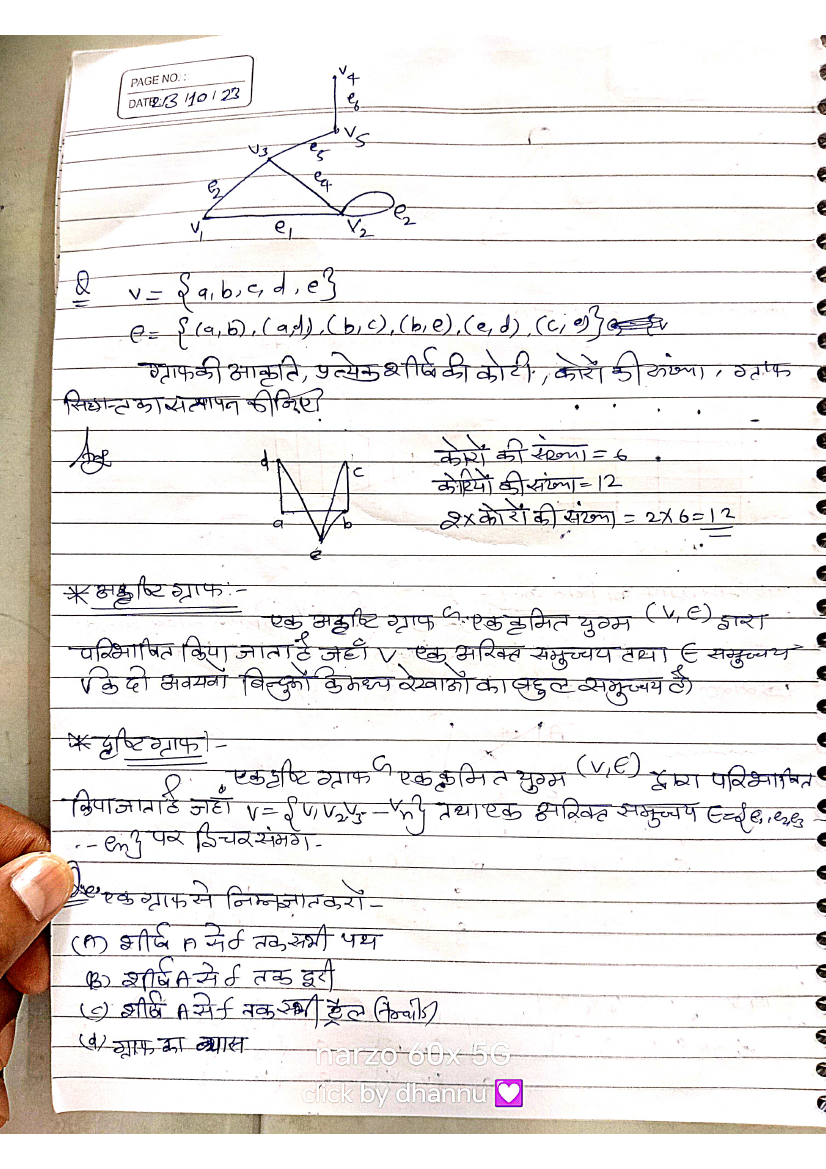 PAGE NO. :
DATE 23/10/23
V4
e6
V5
V3
e5
e2
e4
V1
e1
V2
e2
Q V = {a, b, c, d, e}
e = {(a,b), (a,d), (b,c), (b,e), (e,d), (c,e)}
ग्राफ की आकृति, प्रत्येक शीर्ष की कोटी, कोरों की संख्या, ग्राफ
सिद्धान्त का सत्यापन कीजिए?
Ans
d
c
a
b
e
कोरों की संख्या = 6
कोटियों की संख्या = 12
2 x कोरों की संख्या = 2 x 6 = 12
* अदृष्टि ग्राफ :-
एक अदृष्टि ग्राफ G एक क्रमित युग्म (V, E) द्वारा
परिभाषित किया जाता है जहाँ V एक अरिक्त समुच्चय तथा E समुच्चय
V के दो अवयवों बिन्दुओं के मध्य रेखाओं का बहुल समुच्चय है)
* दृष्टि ग्राफ :-
एक दृष्टि ग्राफ G एक क्रमित युग्म (V, E) द्वारा परिभाषित
किया जाता है जहाँ V = {V1 V2 V3 - - Vn} तथा एक अरिक्त समुच्चय E = {e1, e2 e3 -
- - en} पर
Que एक ग्राफ से निम्न ज्ञात करों -
(A) शीर्ष A से f तक सभी पथ
(B) शीर्ष A से f तक दूरी
(C) शीर्ष A से f तक सभी ट्रैल
(d) ग्राफ का व्यास
narzo 60x 5G
click by dhannu